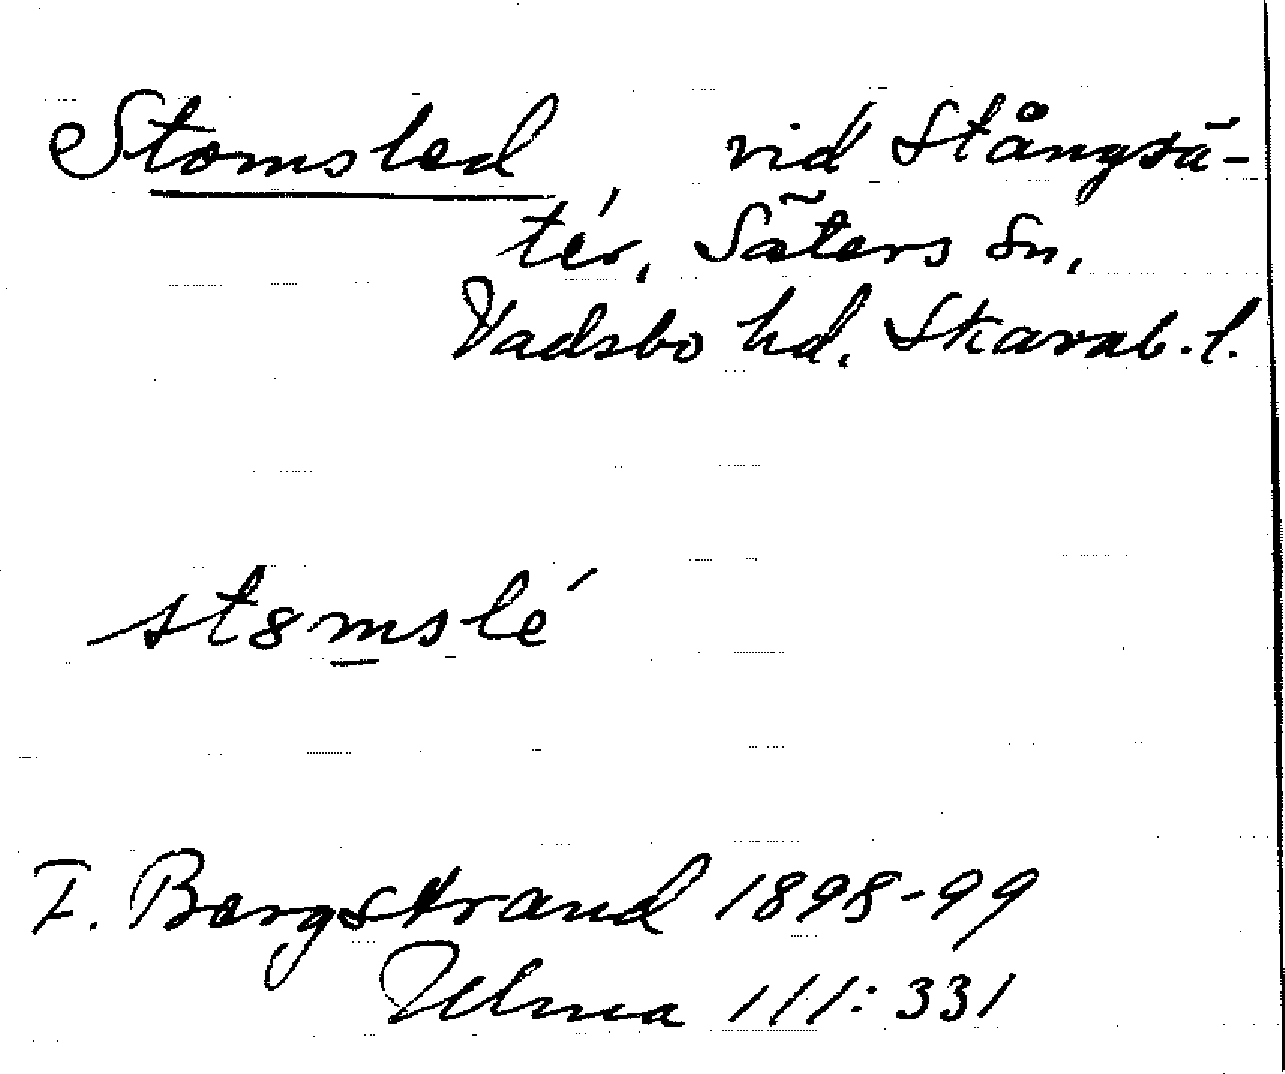 Stomsled vid Stångsä-
ter, Säters sn,
Vadsbo hd. Skarab. l.
st8mslé
F. Bergstrand 1898-99
Ulma 111:331